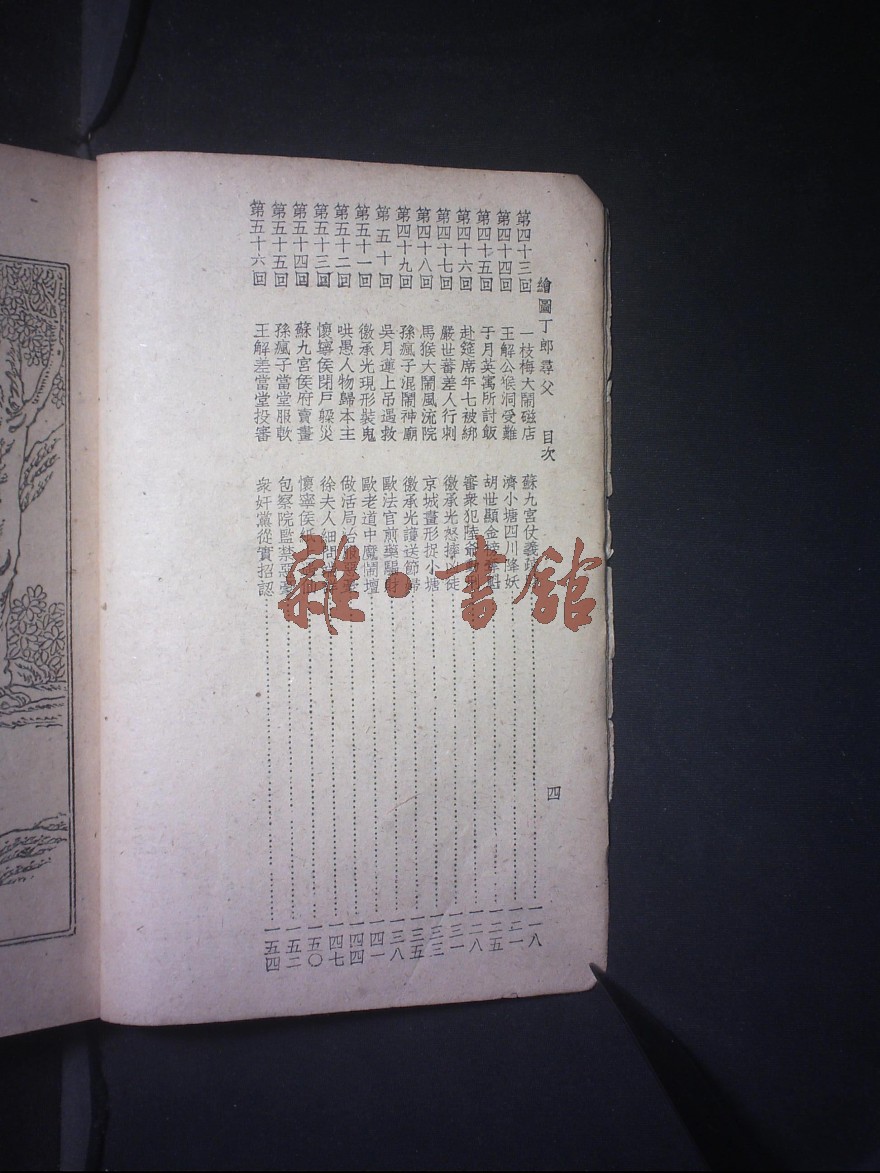 繪圖丁郎尋父 目次 四
第四十三回 一枝梅大鬧磁店 蘇九宮仗義疏 一一八
第四十四回 王解公猴洞受難 濟小塘四川降妖 一二一
第四十五回 于月英寓所討飯 胡世顯金 一二五
第四十六回 赴筵席年七被綁 審衆犯陸爺 一二八
第四十七回 嚴世蕃差人行刺 徽承光怒摔 徒 一三一
第四十八回 馬猴大鬧風流院 京城畫形捉小塘 一三三
第四十九回 孫瘋子混鬧神廟 徽承光護送節婦 一三五
第五十回 吳月蓮上吊遇救 歐法官煎藥騙財 一三八
第五十一回 徽承光現形裝鬼 歐老道中魔鬧壇 一四一
第五十二回 哄愚人物歸本主 做活局治 一四四
第五十三回 懷寧侯閉戶躱災 徐夫人細問 一四七
第五十四回 蘇九宮侯府賣畫 懷寧侯 仙 一五〇
第五十五回 孫瘋子當堂服軟 包察院監禁惡 一五二
第五十六回 王解差當堂投審 衆奸黨從實招認 一五四
雜·書館